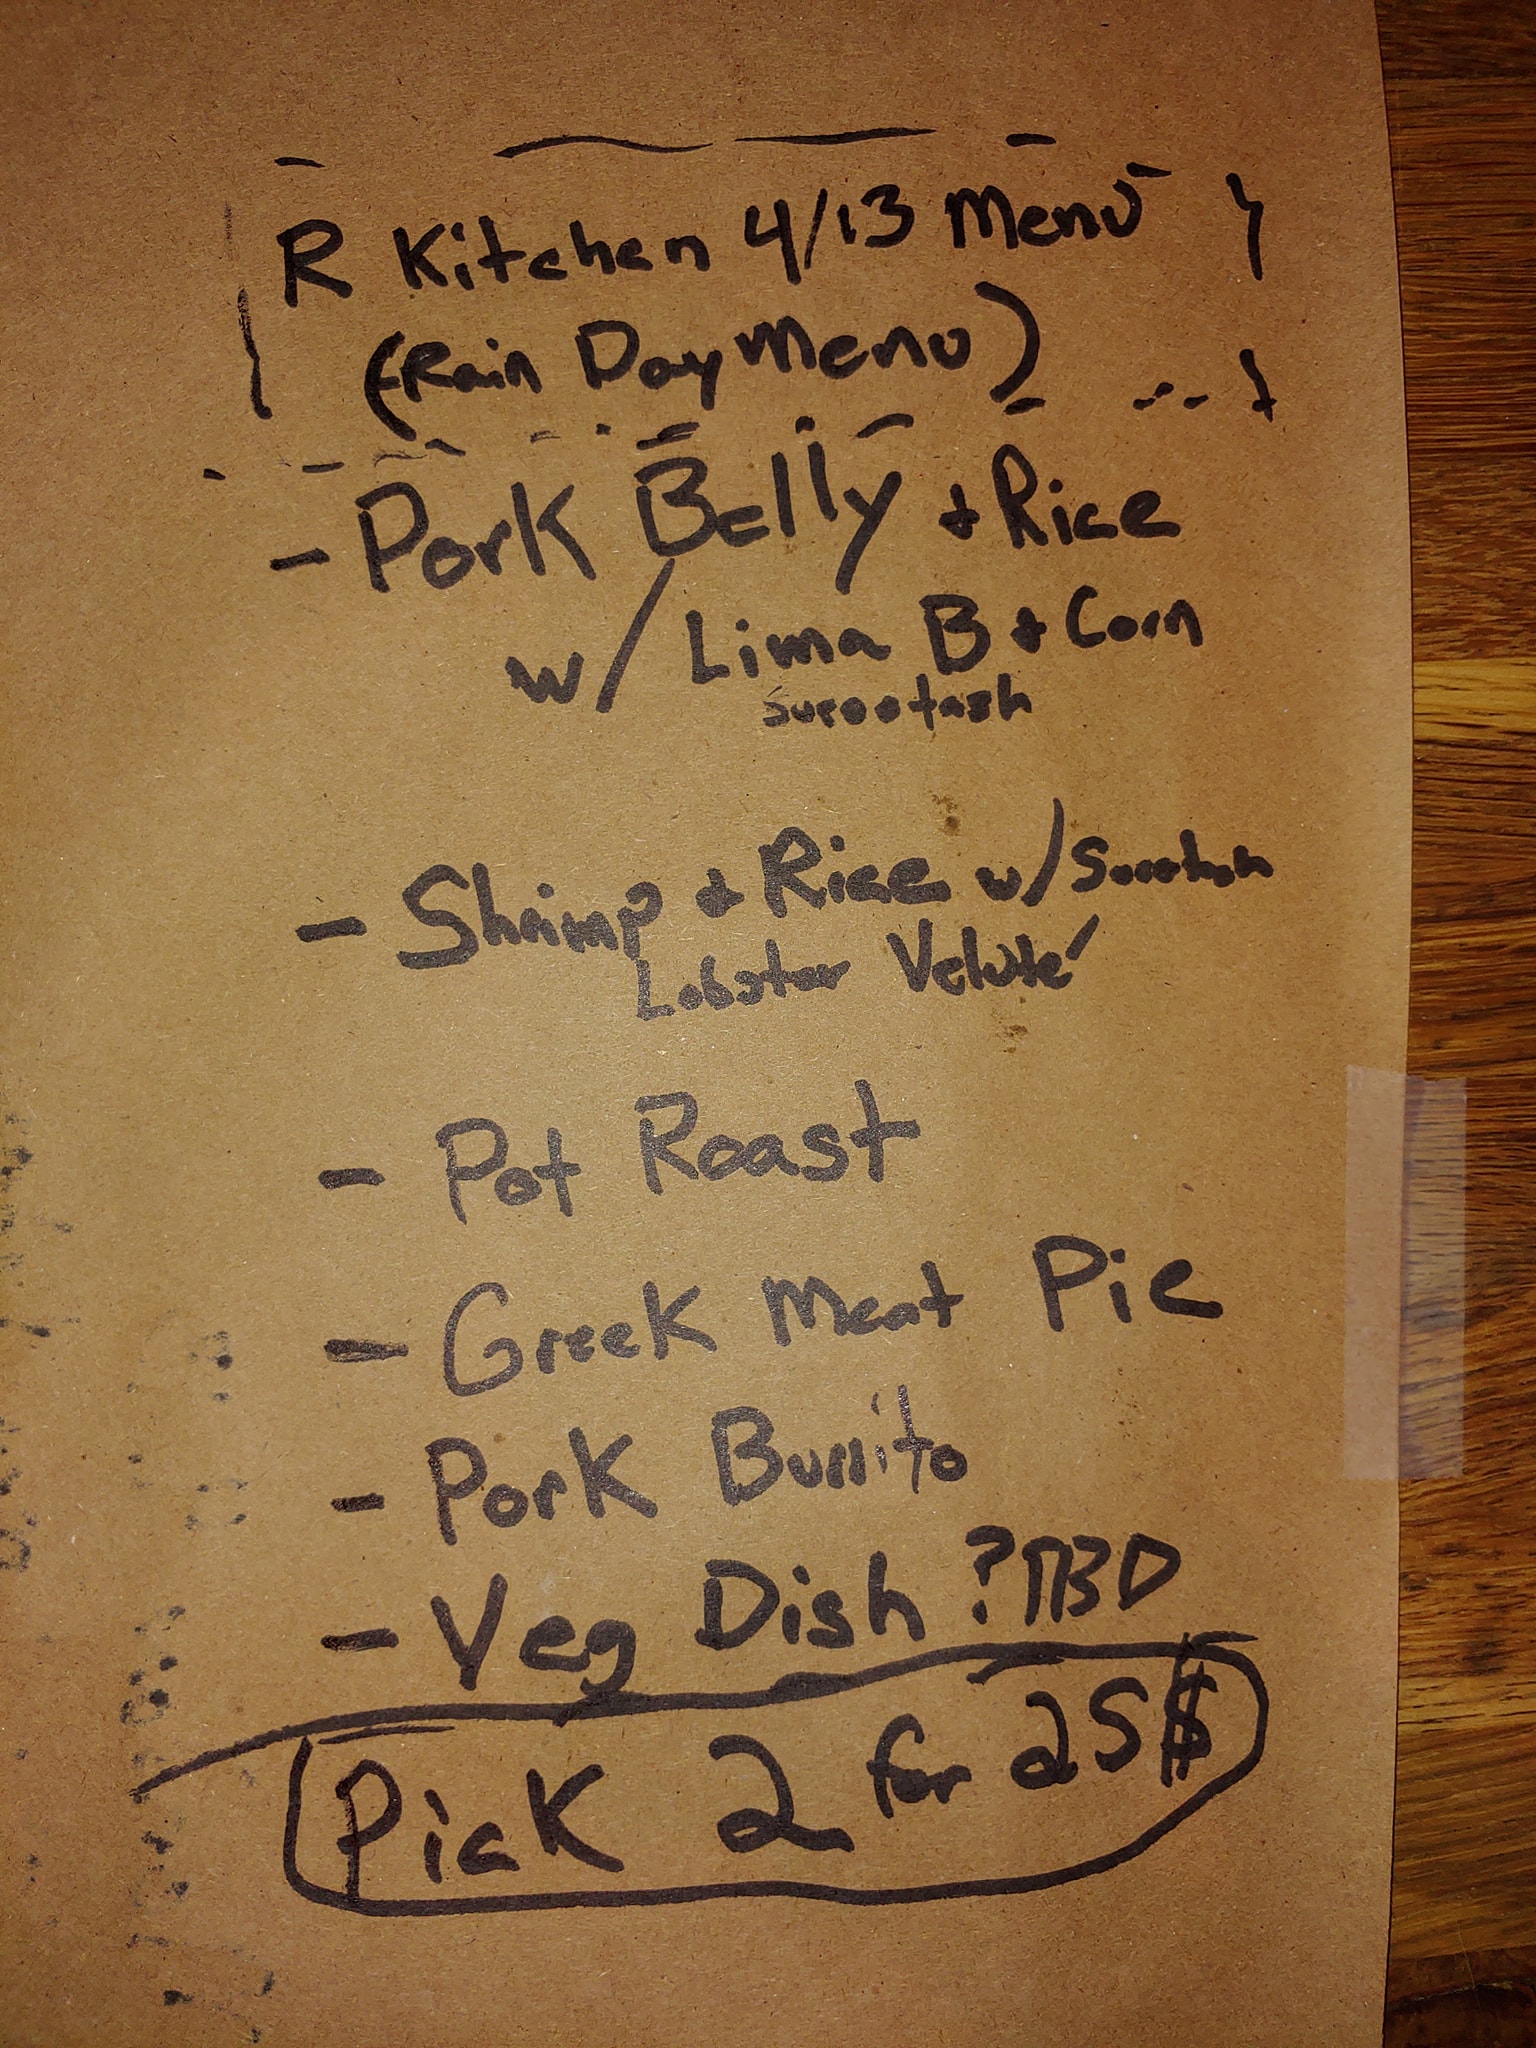 R Kitchen 4/13 Menu
(Rain Day Menu)
- Pork Belly + Rice
w/ Lima B + Corn
Succotash
- Shrimp + Rice w/
Lobster Velouté
- Pot Roast
- Greek Meat Pie
- Pork Burrito
- Veg Dish ? TBD
Pick 2 for 25$